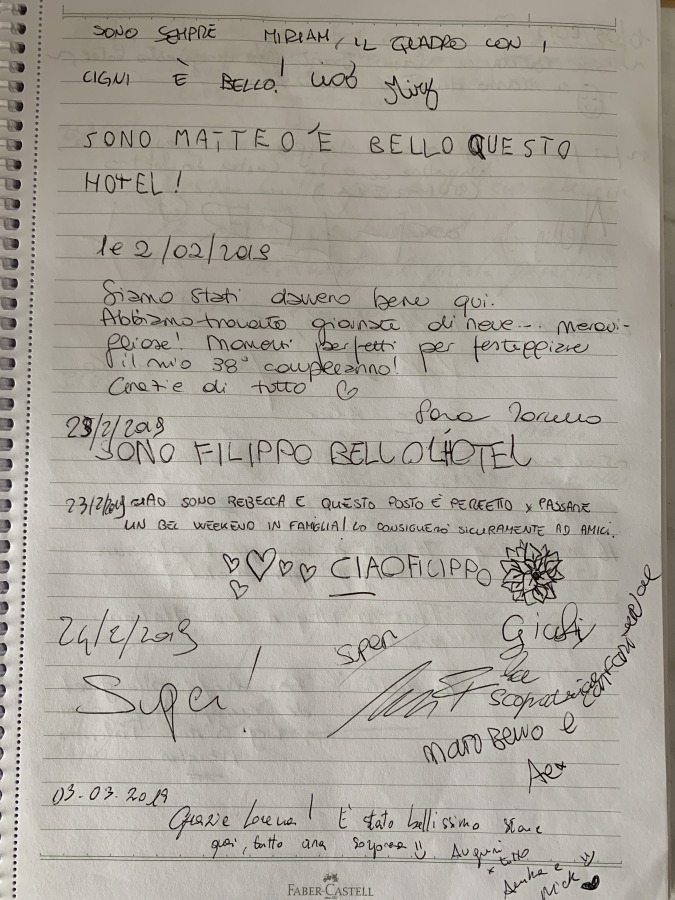 SONO SEMPRE MIRIAM, IL QUADRO CON I
CIGNI È BELLO!
SONO MATTEO È BELLO QUESTO
HOTEL!
le 2/02/2019
Siamo stati davvero bene qui.
Abbiamo trovato giornate di neve... meravi-
gliose! Momenti perfetti per festeggiare
il mio 38° compleanno!
Grazie di tutto
Sara
23/2/2019
SONO FILIPPO BELLO L'HOTEL
23/2/2019 CIAO SONO REBECCA E QUESTO POSTO È PERFETTO X PASSARE
UN BEL WEEKEND IN FAMIGLIA! LO CONSIGLIERÒ SICURAMENTE AD AMICI.
CIAO FILIPPO
24/2/2019
Super
Super!
03.03.2019
Grazie Lorena! È stato bellissimo stare
qui, tutto una sorpresa Auguri
x tutto
Nick
FABER-CASTELL